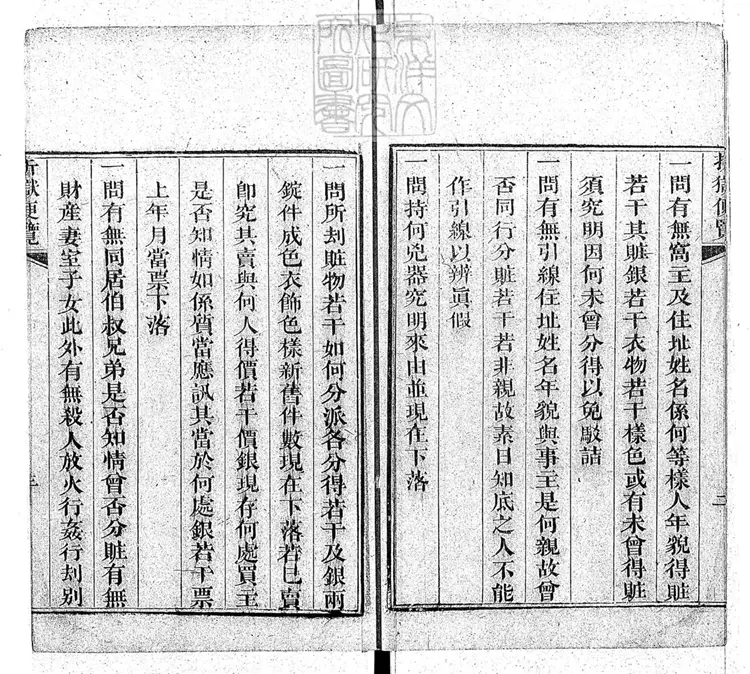 東洋文
化研究
所圖書
折獄便覽
二
一問有無窩主及住址姓名係何等樣人年貌得賍
若干其賍銀若干衣物若干樣色或有未曾得賍
須究明因何未曾分得以免駁詰
一問有無引線住址姓名年貌與事主是何親故曾
否同行分賍若干若非親故素日知底之人不能
作引線以辨眞假
一問持何兇器究明來由並現在下落
一問所刦賍物若干如何分派各分得若干及銀兩
錠件成色衣飾色樣新舊件數現在下落若已賣
卽究其賣與何人得價若干價銀現存何處買主
是否知情如係質當應訊其當於何處銀若干票
上年月當票下落
一問有無同居伯叔兄弟是否知情曾否分賍有無
財產妻室子女此外有無殺人放火行姦行刦別
折獄便覽
三